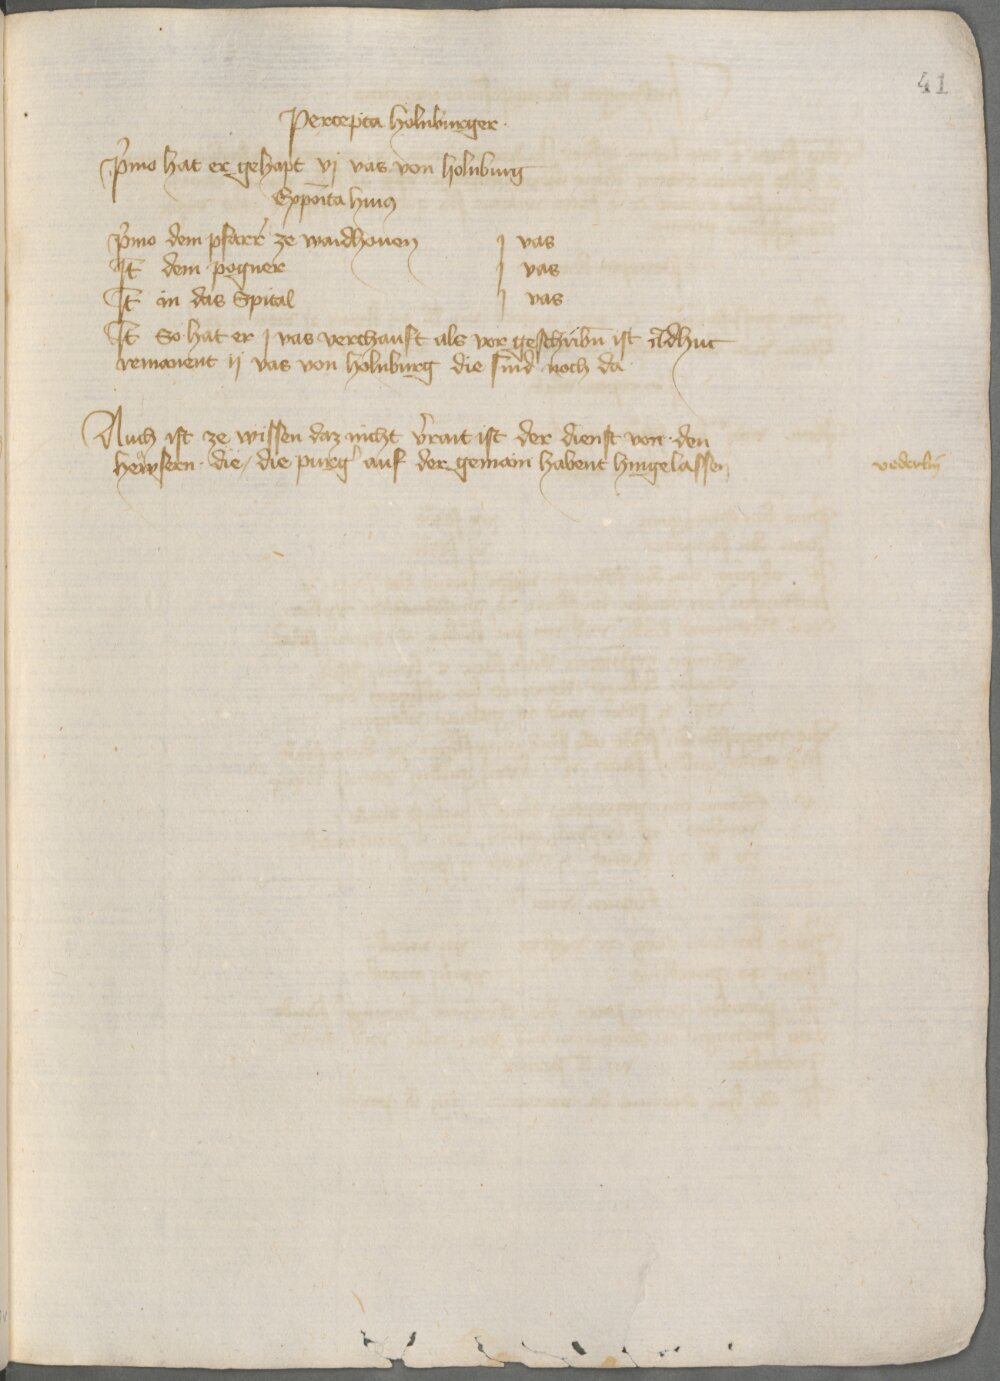 41
Percepta holnburger.
P̃mo hat er gehapt vj vas von holnburg
Expõita huiꝰ
P̃mo dem pfarr̃ ze waidhouen j vas
It̃ dem pogner j vas
It̃ in das Spital j vas
It̃ So hat er j vas verchauft als vor geschribn̄ ist Adhuc
remanent ij vas von holnburg die sind noch da
Auch ist ze wissen daz nicht v̾rait ist der dienst von den
hewsern. die / die purg̾ auf der gemain habent hingelassen